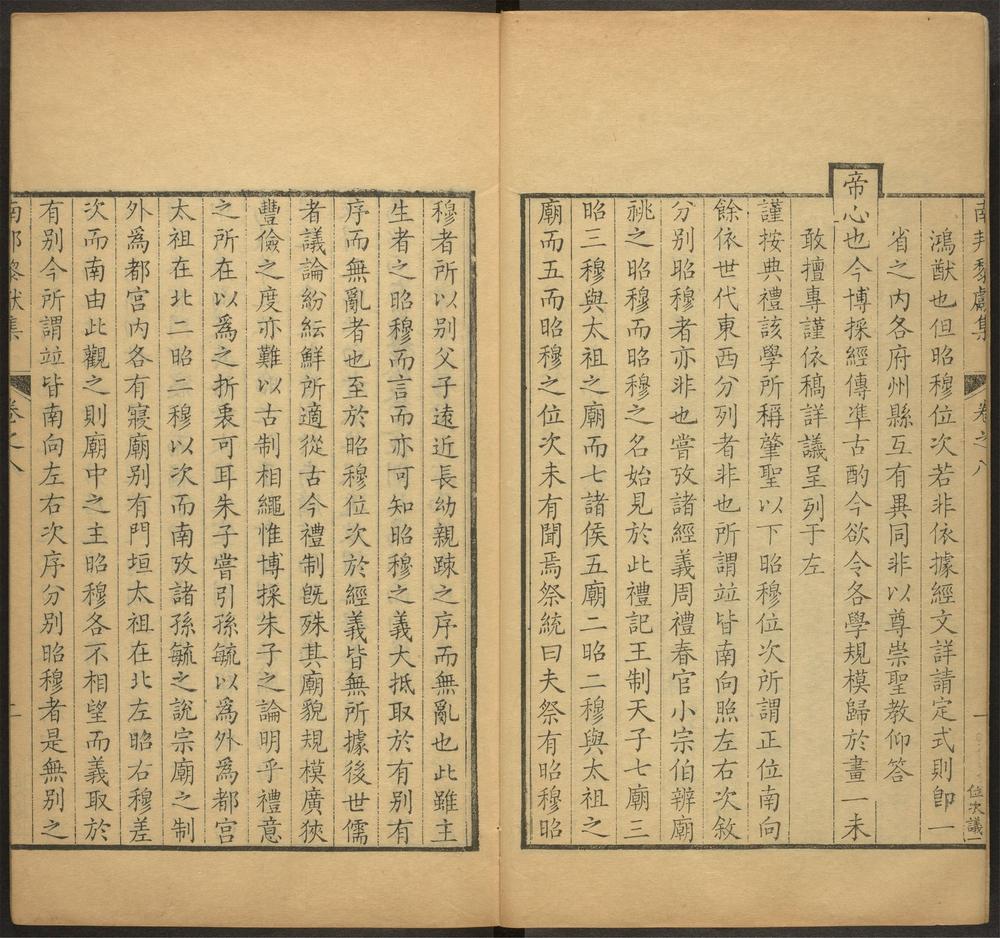 南邦黎獻集 卷之八 一 位次議一
鴻猷也但昭穆位次若非依據經文詳請定式則卽一
省之內各府州縣互有異同非以尊崇聖教仰答
帝心也今博採經傳準古酌今欲令各學規模歸於畫一未
敢擅專謹依稿詳議呈列于左
謹按典禮該學所稱肇聖以下昭穆位次所謂正位南向
餘依世代東西分列者非也所謂竝皆南向照左右次敘
分別昭穆者亦非也嘗攷諸經義周禮春官小宗伯辨廟
祧之昭穆而昭穆之名始見於此禮記王制天子七廟三
昭三穆與太祖之廟而七諸侯五廟二昭二穆與太祖之
廟而五而昭穆之位次未有聞焉祭統曰夫祭有昭穆昭
穆者所以別父子遠近長幼親踈之序而無亂也此雖主
生者之昭穆而言而亦可知昭穆之義大抵取於有別有
序而無亂者也至於昭穆位次於經義皆無所據後世儒
者議論紛紜鮮所適從古今禮制旣殊其廟貌規模廣狹
豐儉之度亦難以古制相繩惟博採朱子之論明乎禮意
之所在以爲之折衷可耳朱子嘗引孫毓以爲外爲都宮
太祖在北二昭二穆以次而南攷諸孫毓之說宗廟之制
外爲都宮內各有寢廟別有門垣太祖在北左昭右穆差
次而南由此觀之則廟中之主昭穆各不相望而義取於
有別今所謂竝皆南向左右次序分別昭穆者是無別之
卷之八